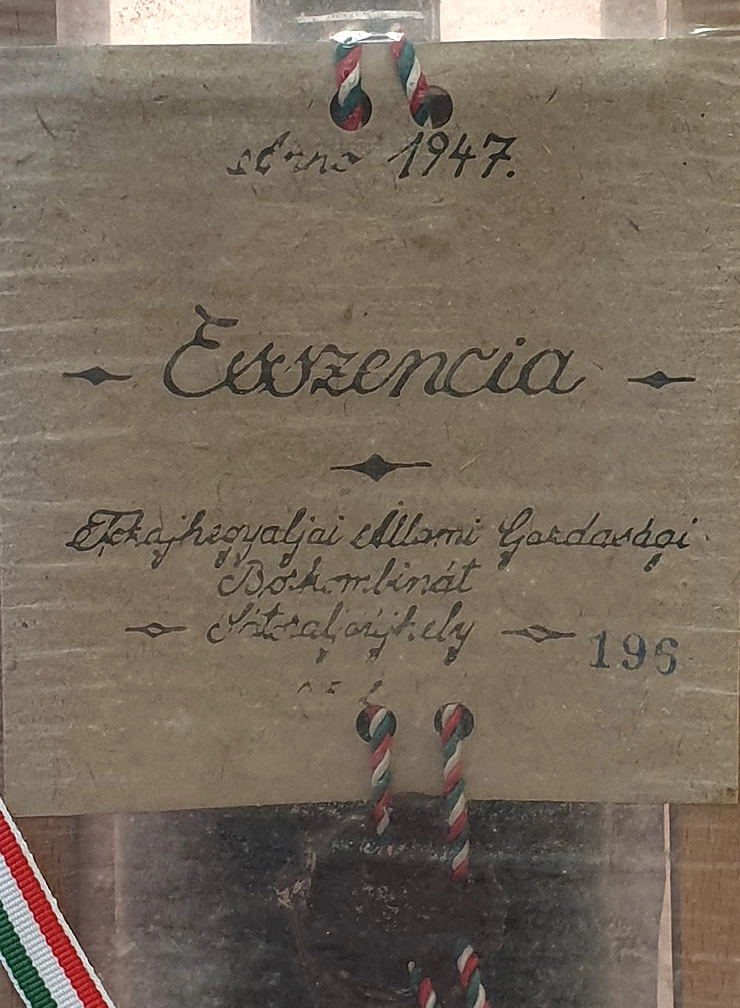 Anno 1947.
Esszencia
Tokajhegyaljai Állami Gazdasági
Borkombinát
Sátoraljaújhely
196